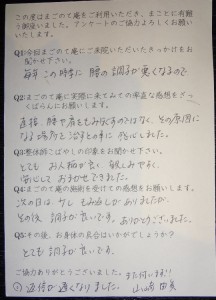 この度はまごのて庵をご利用いただき、まことに有難
う御座いました。アンケートのご協力よろしくお願い
いたします。
Q1:今回まごのて庵にご来院いただいたきっかけをお
聞かせ下さい。
毎年この時季に腰の調子が悪くなるので
Q2:まごのて庵に実際に来てみての率直な感想をざっ
くばらんにお願いします。
直接腰や肩をもみほぐすのではなく、その原因に
なる場所を治すことに感心しました。
Q3:整体師こばやしの印象をお聞かせ下さい。
とてもお人柄が良く親しみやすく、
安心しておまかせできました。
Q4:まごのて庵の施術を受けての感想をお願いします。
次の日は少しもみ返しがありましたが
その後調子が良いです。ありがとうございました。
Q5:その後、お身体の具合はいかがでしょうか?
とても調子が良いです。
ご協力ありがとうございました。また伺います!!
返信が遅くなりました。山崎由美